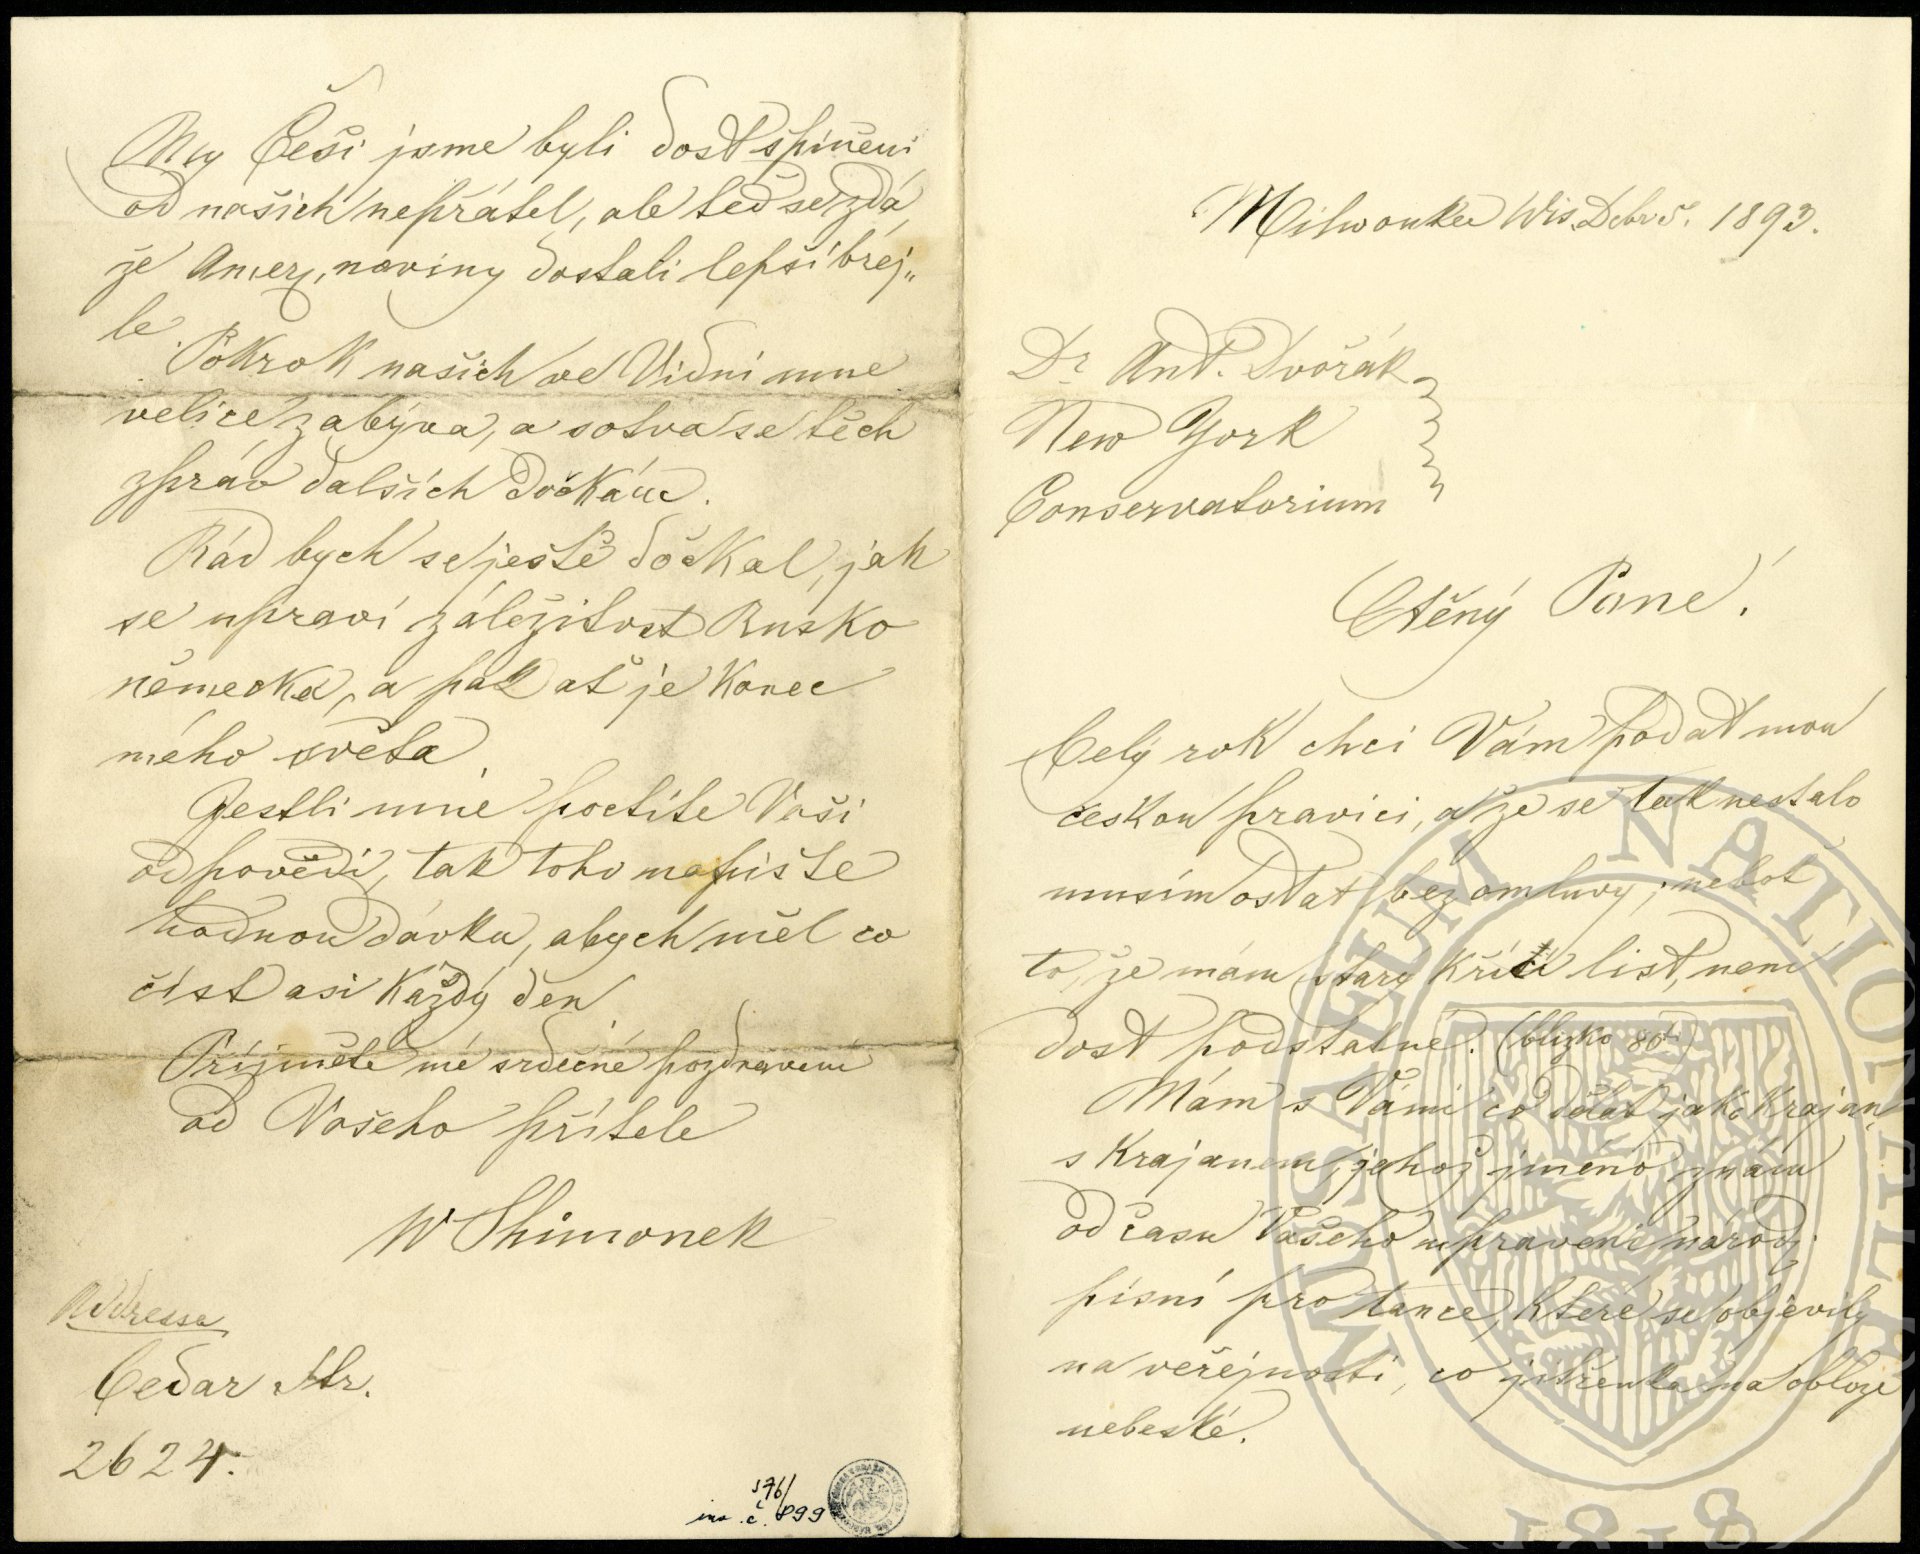 Milwoukee Wis. Debr 5. 1893.
Dr Ant. Dvořák
New York
Conservatorium
Ctěný Pane!
Celý rok chci Vám podat mou
českou pravici, a že se tak nestalo
musím ostat bez omluvy; neboť
to, že mám starý křtící list, není
dost podstatné. (blízko 80ti)
Mám s Vámi co dělat jako krajan
s krajanem, jehož jméno znám
od času Vašeho upravení národ.
písní pro tance, které se objevily
na veřejnosti, co jitřenka na obloze
nebeské.
My Češi jsme byli dost špiněni
od našich nepřátel, ale teď se zdá,
že Amer. noviny dostali lepší brej„
le.
Pokrok našich ve Vídni mne
velice zabývá, a sotva se těch
zpráv dalších dočkám.
Rád bych se ještě dočkal, jak
se upraví záležitost Rusko
německá, a pak ať je konec
mého světa.
Jestli mne poctíte Vaší
odpovědí, tak toho napište
hodnou dávku, abych měl co
číst asi každý den.
Príjměte mé srdečné pozdravení
od Vašeho přítele
W Shimonek
Addressa
Cedar Str.
2624.
S76/
inv. č. 899
MUSAEUM NATIONALE
1818